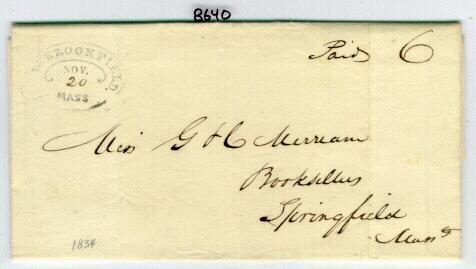 8640
W. BROOKFIELD.
NOV.
20
MASS
Paid 6
Mess G & C Merriam
Booksellers
Springfield
Masts
1834